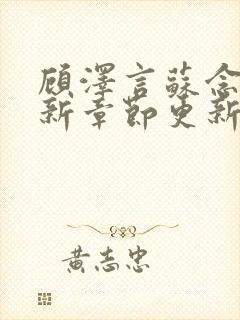 顾澤言蘇念
新章節更新
黃志忠